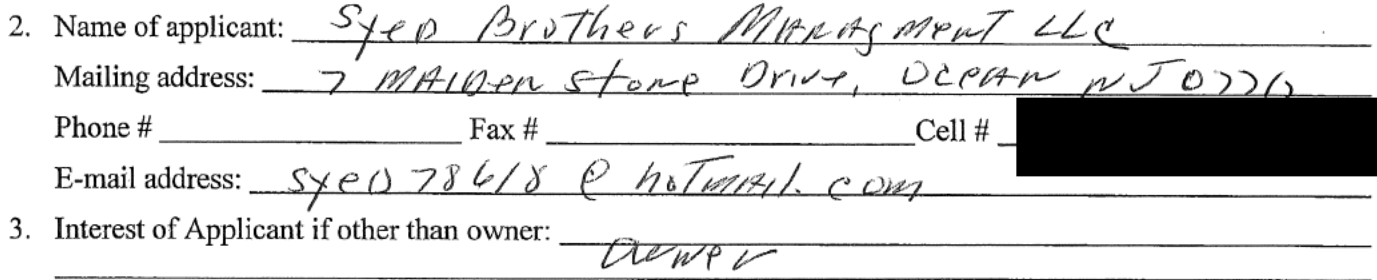 2. Name of applicant: Syed Brothers Managment LLC
Mailing address: 7 MAIDen Stone Drive, OCeAn NJ 07712
Phone # Fax # Cell #
E-mail address: syed78618@hotmail.com
3. Interest of Applicant if other than owner:
owner